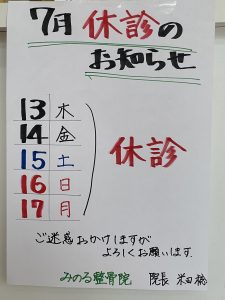 7月 休診の
お知らせ
13 木
14 金
15 土
16 日
17 月
休診
ご迷惑おかけしますが
よろしくお願います
みのる整骨院 院長 米田 稔